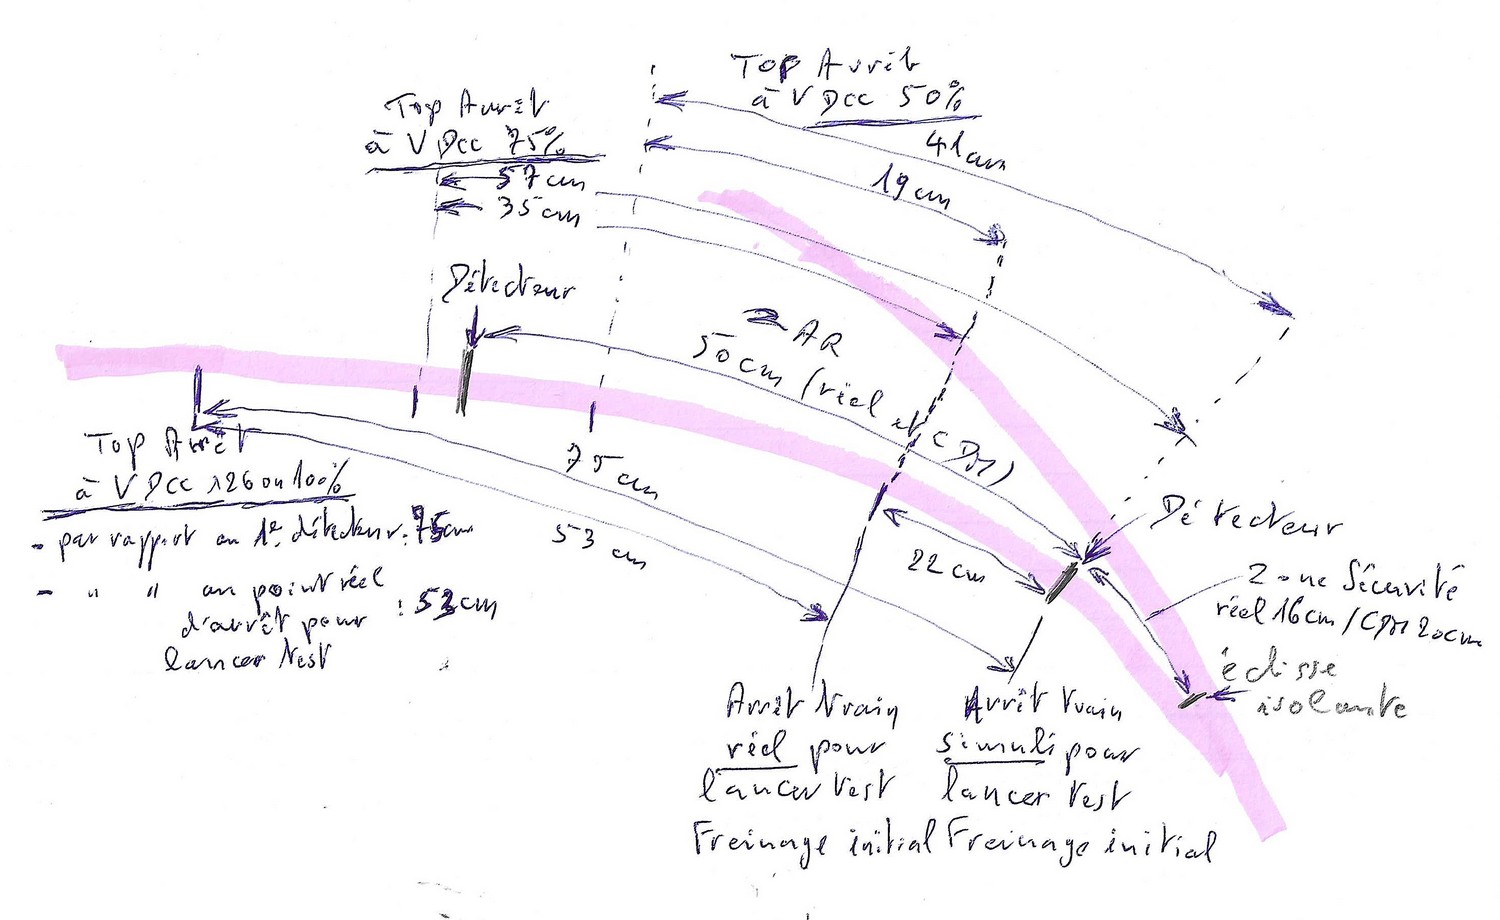 Top Arrêt
à VDcc 50%
41cm
19cm
Top Arrêt
à VDcc 75%
57cm
35cm
Détecteur
ZAR
50cm (réel et CDM)
Top Arrêt
à VDcc 126 ou 100%
- par rapport au 1er détecteur : 75cm
- " " au point réel
d'arrêt pour : 53cm
lancer test
75 cm
53 cm
22cm
Détecteur
Zone Sécurité
réel 16cm / CDM 20cm
éclisse
isolante
Arrêt train
réel pour
lancer test
Freinage initial
Arrêt train
simulé pour
lancer test
Freinage initial